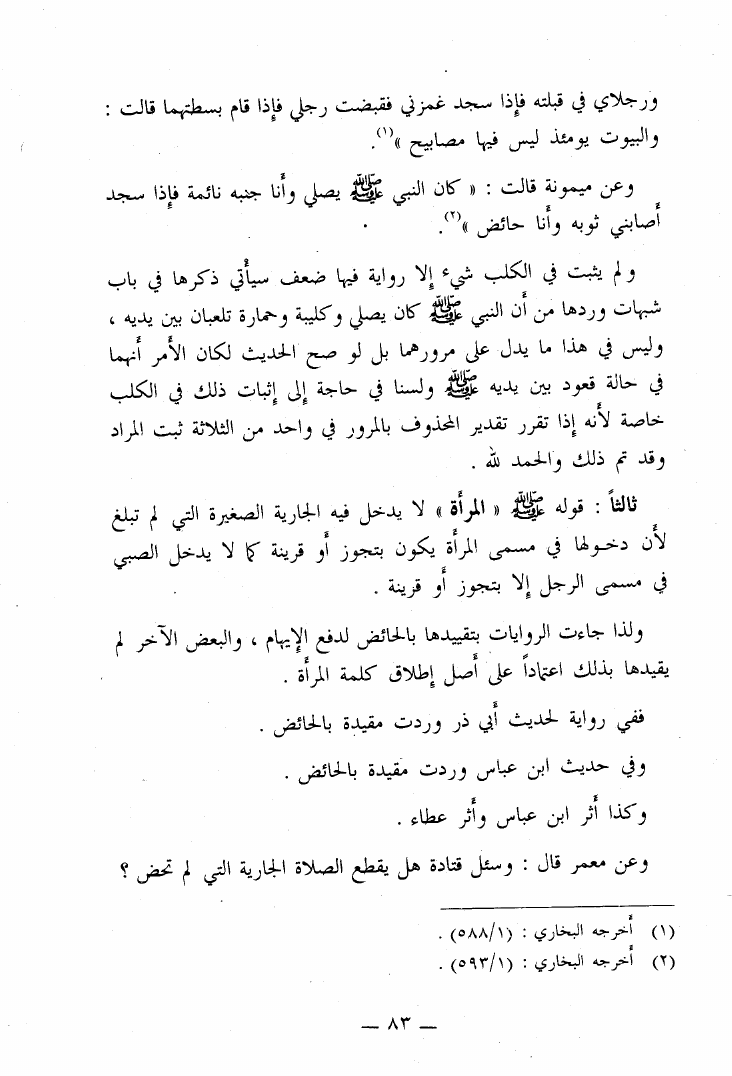 ورجلاي في قبلته فإذا سجد غمزني فقبضت رجلي فإذا قام بسطتهما قالت :
والبيوت يومئذ ليس فيها مصابيح »(١).
وعن ميمونة قالت : « كان النبي ﷺ يصلي وأنا جنبه نائمة فإذا سجد
أصابني ثوبه وأنا حائض »(٢).
ولم يثبت في الكلب شيء إلا رواية فيها ضعف سيأتي ذكرها في باب
شبهات وردها من أن النبي ﷺ كان يصلي وكليبة وحمارة تلعبان بين يديه ،
وليس في هذا ما يدل على مرورهما بل لو صح الحديث لكان الأمر أنهما
في حالة قعود بين يديه ﷺ ولسنا في حاجة إلى إثبات ذلك في الكلب
خاصة لأنه إذا تقرر تقدير المحذوف بالمرور في واحد من الثلاثة ثبت المراد
وقد تم ذلك والحمد لله .
ثالثاً : قوله ﷺ « المرأة » لا يدخل فيه الجارية الصغيرة التي لم تبلغ
لأن دخولها في مسمى المرأة يكون بتجوز أو قرينة كما لا يدخل الصبي
في مسمى الرجل إلا بتجوز أو قرينة .
ولذا جاءت الروايات بتقييدها بالحائض لدفع الإيهام ، والبعض الآخر لم
يقيدها بذلك اعتماداً على أصل إطلاق كلمة المرأة .
ففي رواية لحديث أبي ذر وردت مقيدة بالحائض .
وفي حديث ابن عباس وردت مقيدة بالحائض .
وكذا أثر ابن عباس وأثر عطاء .
وعن معمر قال : وسئل قتادة هل يقطع الصلاة الجارية التي لم تحض ؟
(١) أخرجه البخاري : (٥٨٨/١) .
(٢) أخرجه البخاري : (٥٩٣/١) .
— ٨٣ —